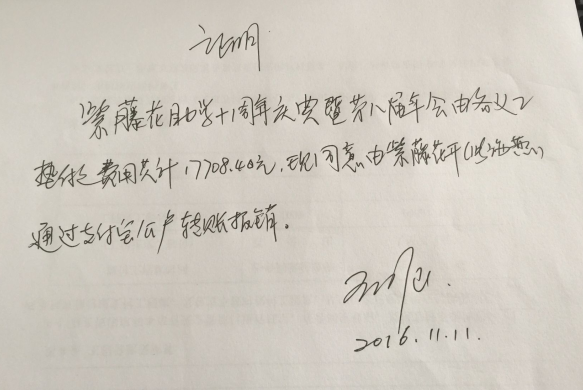 证明
紫藤花助学十周年庆典暨第八届年会由各义工
垫付之费用共计17708.40元,现同意由紫藤花开()
通过支付宝公户转账报销。
2016.11.11.